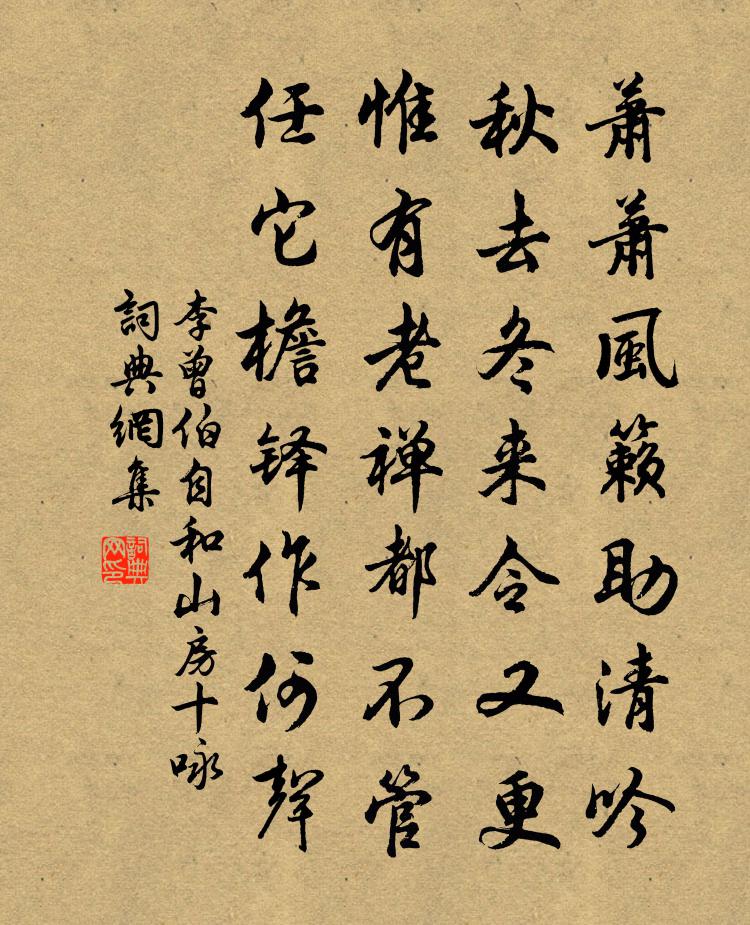 蕭蕭風籟助清吟
秋去冬来令又更
惟有老禅都不管
任它檐铎作何聲
李曾伯自和山房十咏
詞典網集
詞典网印